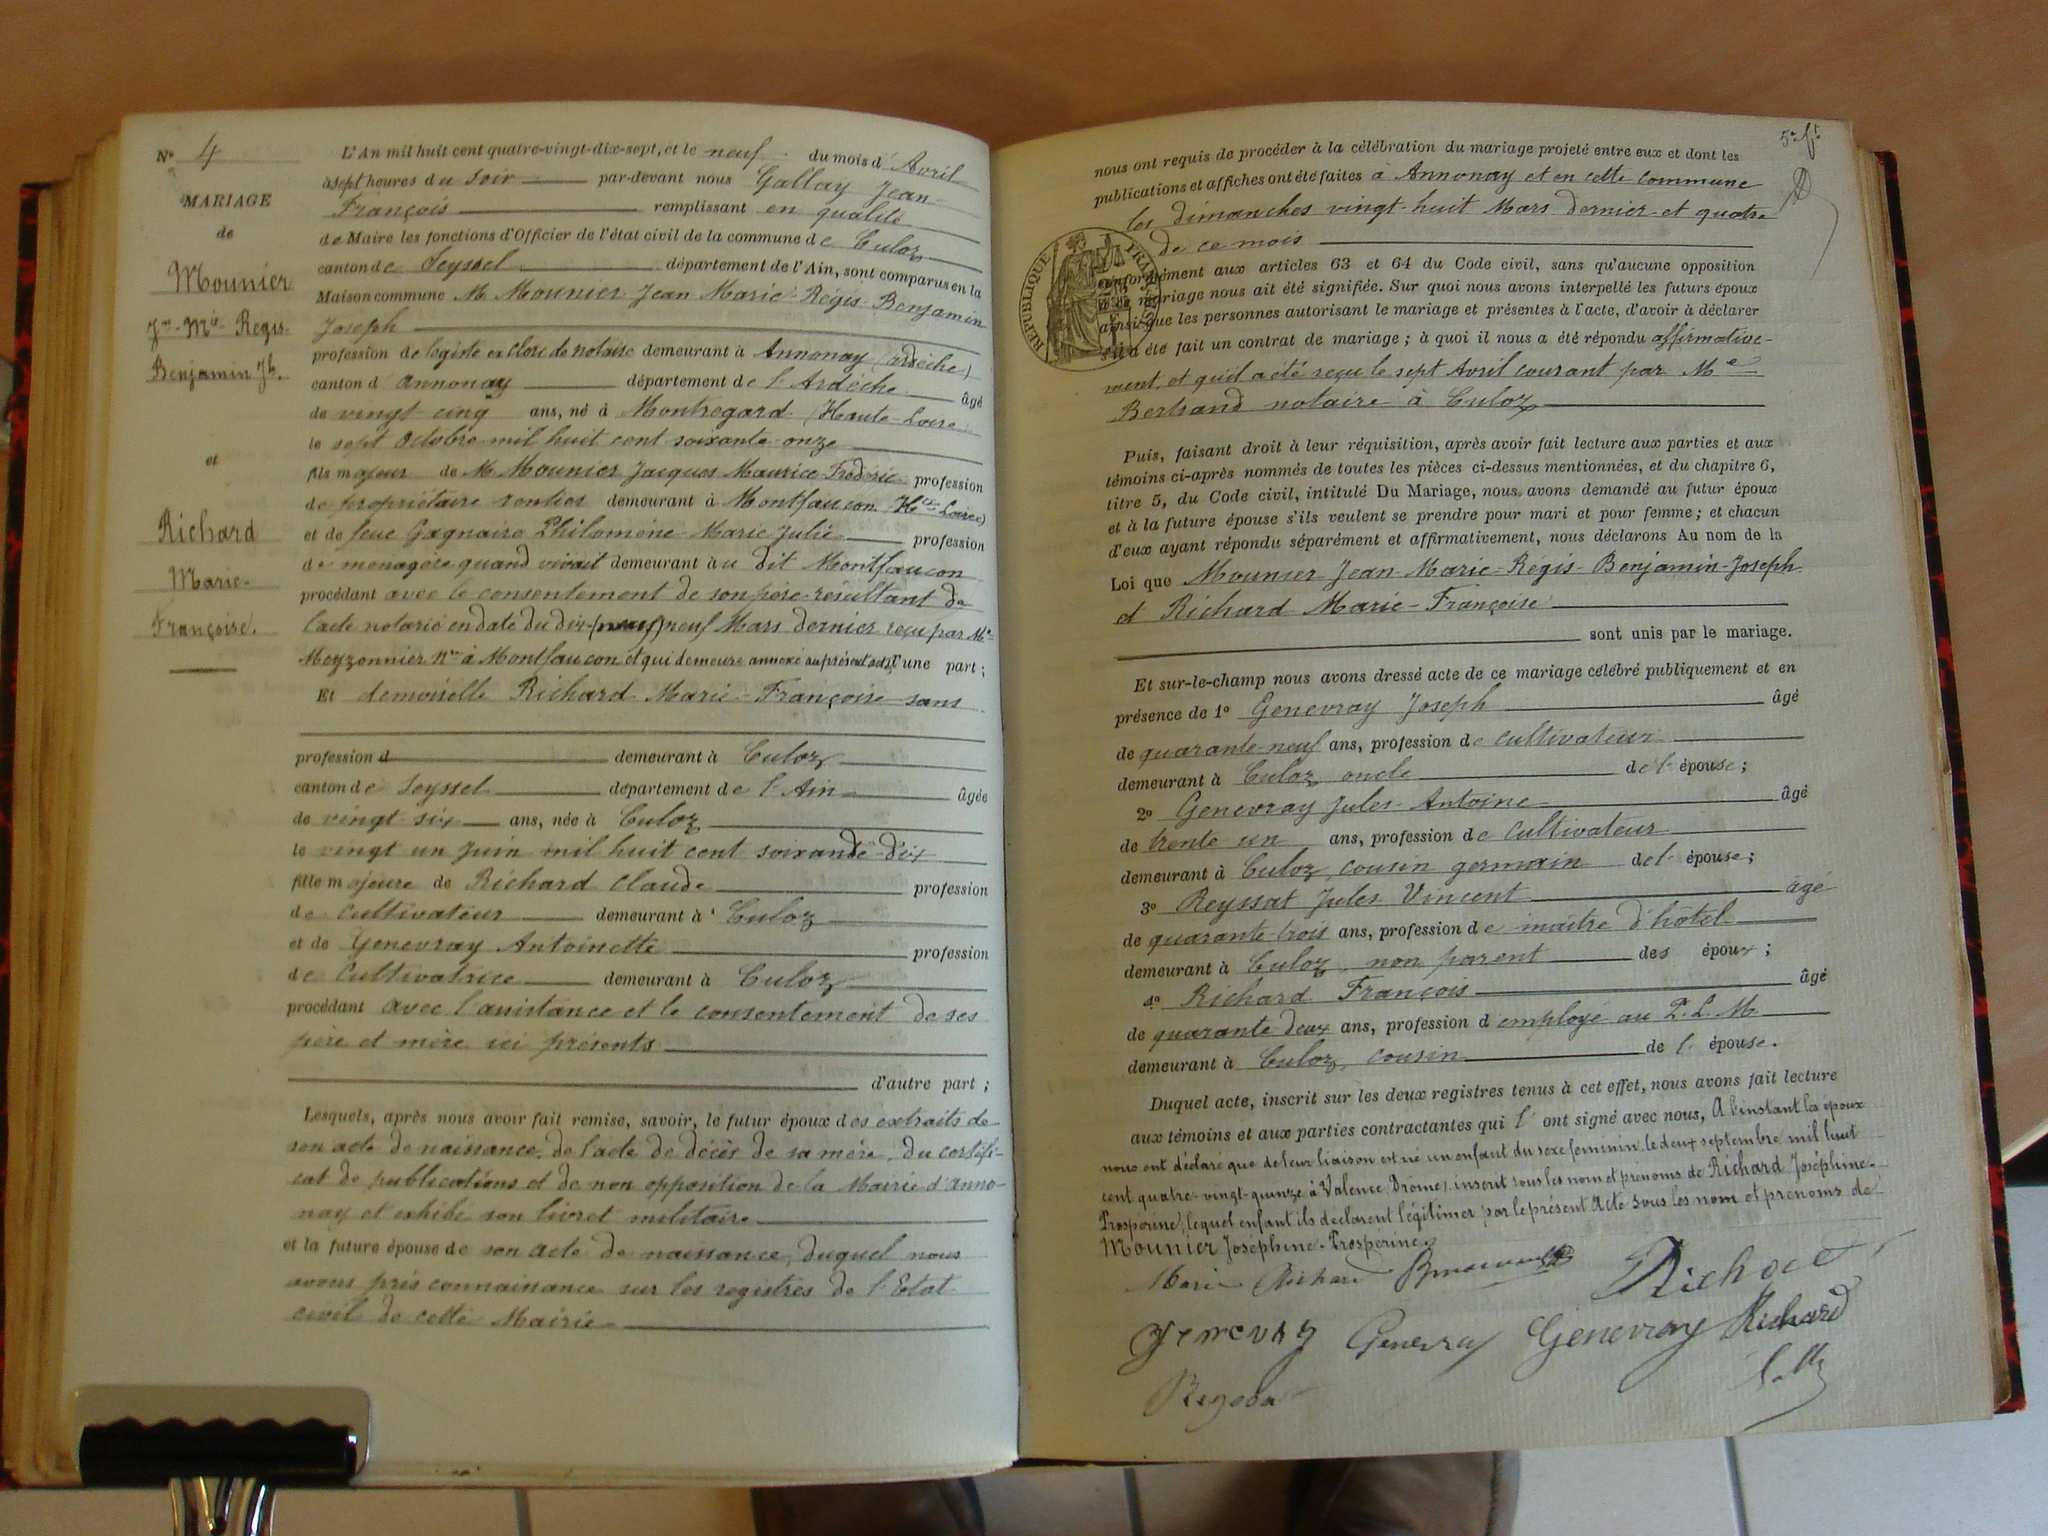 N° 4
MARIAGE
de
Mounier
Jn-Mie Régis-
Benjamin Jh.
et
Richard
Marie-
Françoise.
L'An mil huit cent quatre-vingt-dix-sept, et le neuf du mois d'Avril
à sept heures du Soir par-devant nous Gallay Jean-
François remplissant en qualité
de Maire les fonctions d'Officier de l'état civil de la commune de Culoz
canton de Seyssel département de l'Ain, sont comparus en la
Maison commune M. Mounier Jean Marie-Régis-Benjamin
Joseph
profession de légiste ex clerc de notaire demeurant à Annonay (Ardèche)
canton d'annonay département de l'Ardèche âgé
de vingt cinq ans, né à Montregard (Haute-Loire
le sept Octobre mil huit cent soixante-onze
fils majeur de M. Mounier Jacques Maurice Frédéric profession
de propriétaire rentier demeurant à Montfaucon (Hte Loire)
et de feue Gagnaire Philomène Marie Julie profession
de ménagère quand vivait demeurant à u dit Montfaucon
procédant avec le consentement de son père résultant de
l'acte notarié en date du dix-(neuf) neuf Mars dernier reçu par Me
Meyzonnier Nre à Montfaucon et qui demeure annexé au présent acte d'une part ;
Et demoiselle Richard Marie-Françoise sans
profession d demeurant à Culoz
canton de Seyssel département de l'Ain âgée
de vingt six ans, née à Culoz
le vingt un Juin mil huit cent soixante-dix
fille majeure de Richard Claude profession
de cultivateur demeurant à Culoz
et de Genevray Antoinette profession
de Cultivatrice demeurant à Culoz
procédant avec l'assistance et le consentement de ses
père et mère ici présents
d'autre part ;
Lesquels, après nous avoir fait remise, savoir, le futur époux des extraits de
son acte de naissance, de l'acte de décès de sa mère, du certifi-
cat de publications et de non opposition de la Mairie d'Anno-
nay et exhibé son livret militaire
et la future épouse de son acte de naissance, duquel nous
avons pris connaissance sur les registres de l'Etat-
civil de cette Mairie
5e ft
nous ont requis de procéder à la célébration du mariage projeté entre eux et dont les
publications et affiches ont été faites à Annonay et en cette commune
les dimanches vingt-huit Mars dernier et quatre
de ce mois
RÉPUBLIQUE FRANÇAISE
conformément aux articles 63 et 64 du Code civil, sans qu'aucune opposition
à ce mariage nous ait été signifiée. Sur quoi nous avons interpellé les futurs époux
ainsi que les personnes autorisant le mariage et présentes à l'acte, d'avoir à déclarer
s'il a été fait un contrat de mariage ; à quoi il nous a été répondu affirmative-
ment, et qu'il a été reçu le sept Avril courant par Me
Bertrand notaire à Culoz
Puis, faisant droit à leur réquisition, après avoir fait lecture aux parties et aux
témoins ci-après nommés de toutes les pièces ci-dessus mentionnées, et du chapitre 6,
titre 5, du Code civil, intitulé Du Mariage, nous avons demandé au futur époux
et à la future épouse s'ils veulent se prendre pour mari et pour femme ; et chacun
d'eux ayant répondu séparément et affirmativement, nous déclarons Au nom de la
Loi que Mounier Jean-Marie-Régis-Benjamin-Joseph
et Richard Marie-Françoise
sont unis par le mariage.
Et sur-le-champ nous avons dressé acte de ce mariage célébré publiquement et en
présence de 1° Genevray Joseph âgé
de quarante-neuf ans, profession de cultivateur
demeurant à Culoz, oncle de l'épouse ;
2° Genevray Jules-Antoine âgé
de trente un ans, profession de cultivateur
demeurant à Culoz, cousin germain de l'épouse ;
3° Reyssat Jules Vincent âgé
de quarante-trois ans, profession de maître d'hôtel
demeurant à Culoz, non parent des époux ;
4° Richard François âgé
de quarante deux ans, profession d'employé au P.L.M.
demeurant à Culoz, cousin de l'épouse.
Duquel acte, inscrit sur les deux registres tenus à cet effet, nous avons fait lecture
aux témoins et aux parties contractantes qui l'ont signé avec nous, A l'instant les époux
nous ont déclaré que de leur liaison est né un enfant du sexe féminin, le deux septembre mil huit
cent quatre-vingt-quinze, à Valence, Drôme, inscrit sous les nom et prénoms de Richard Joséphine-
Prosperine, lequel enfant ils déclarent légitimer par le présent Acte sous les nom et prénoms de
Mounier Joséphine-Prosperine.
Marie Richard Richard
Genevray Genevray Genevray Richard